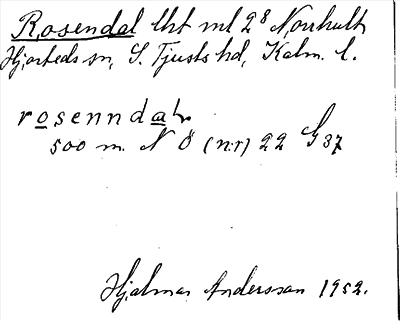 Rosendal lht ml 2⁸ Norrhult
Hjorteds sn, S. Tjusts hd, Kalm. l.
rosenndal,
500 m. N Ö (n:r) 22 G 37
Hjalmar Andersson 1952.